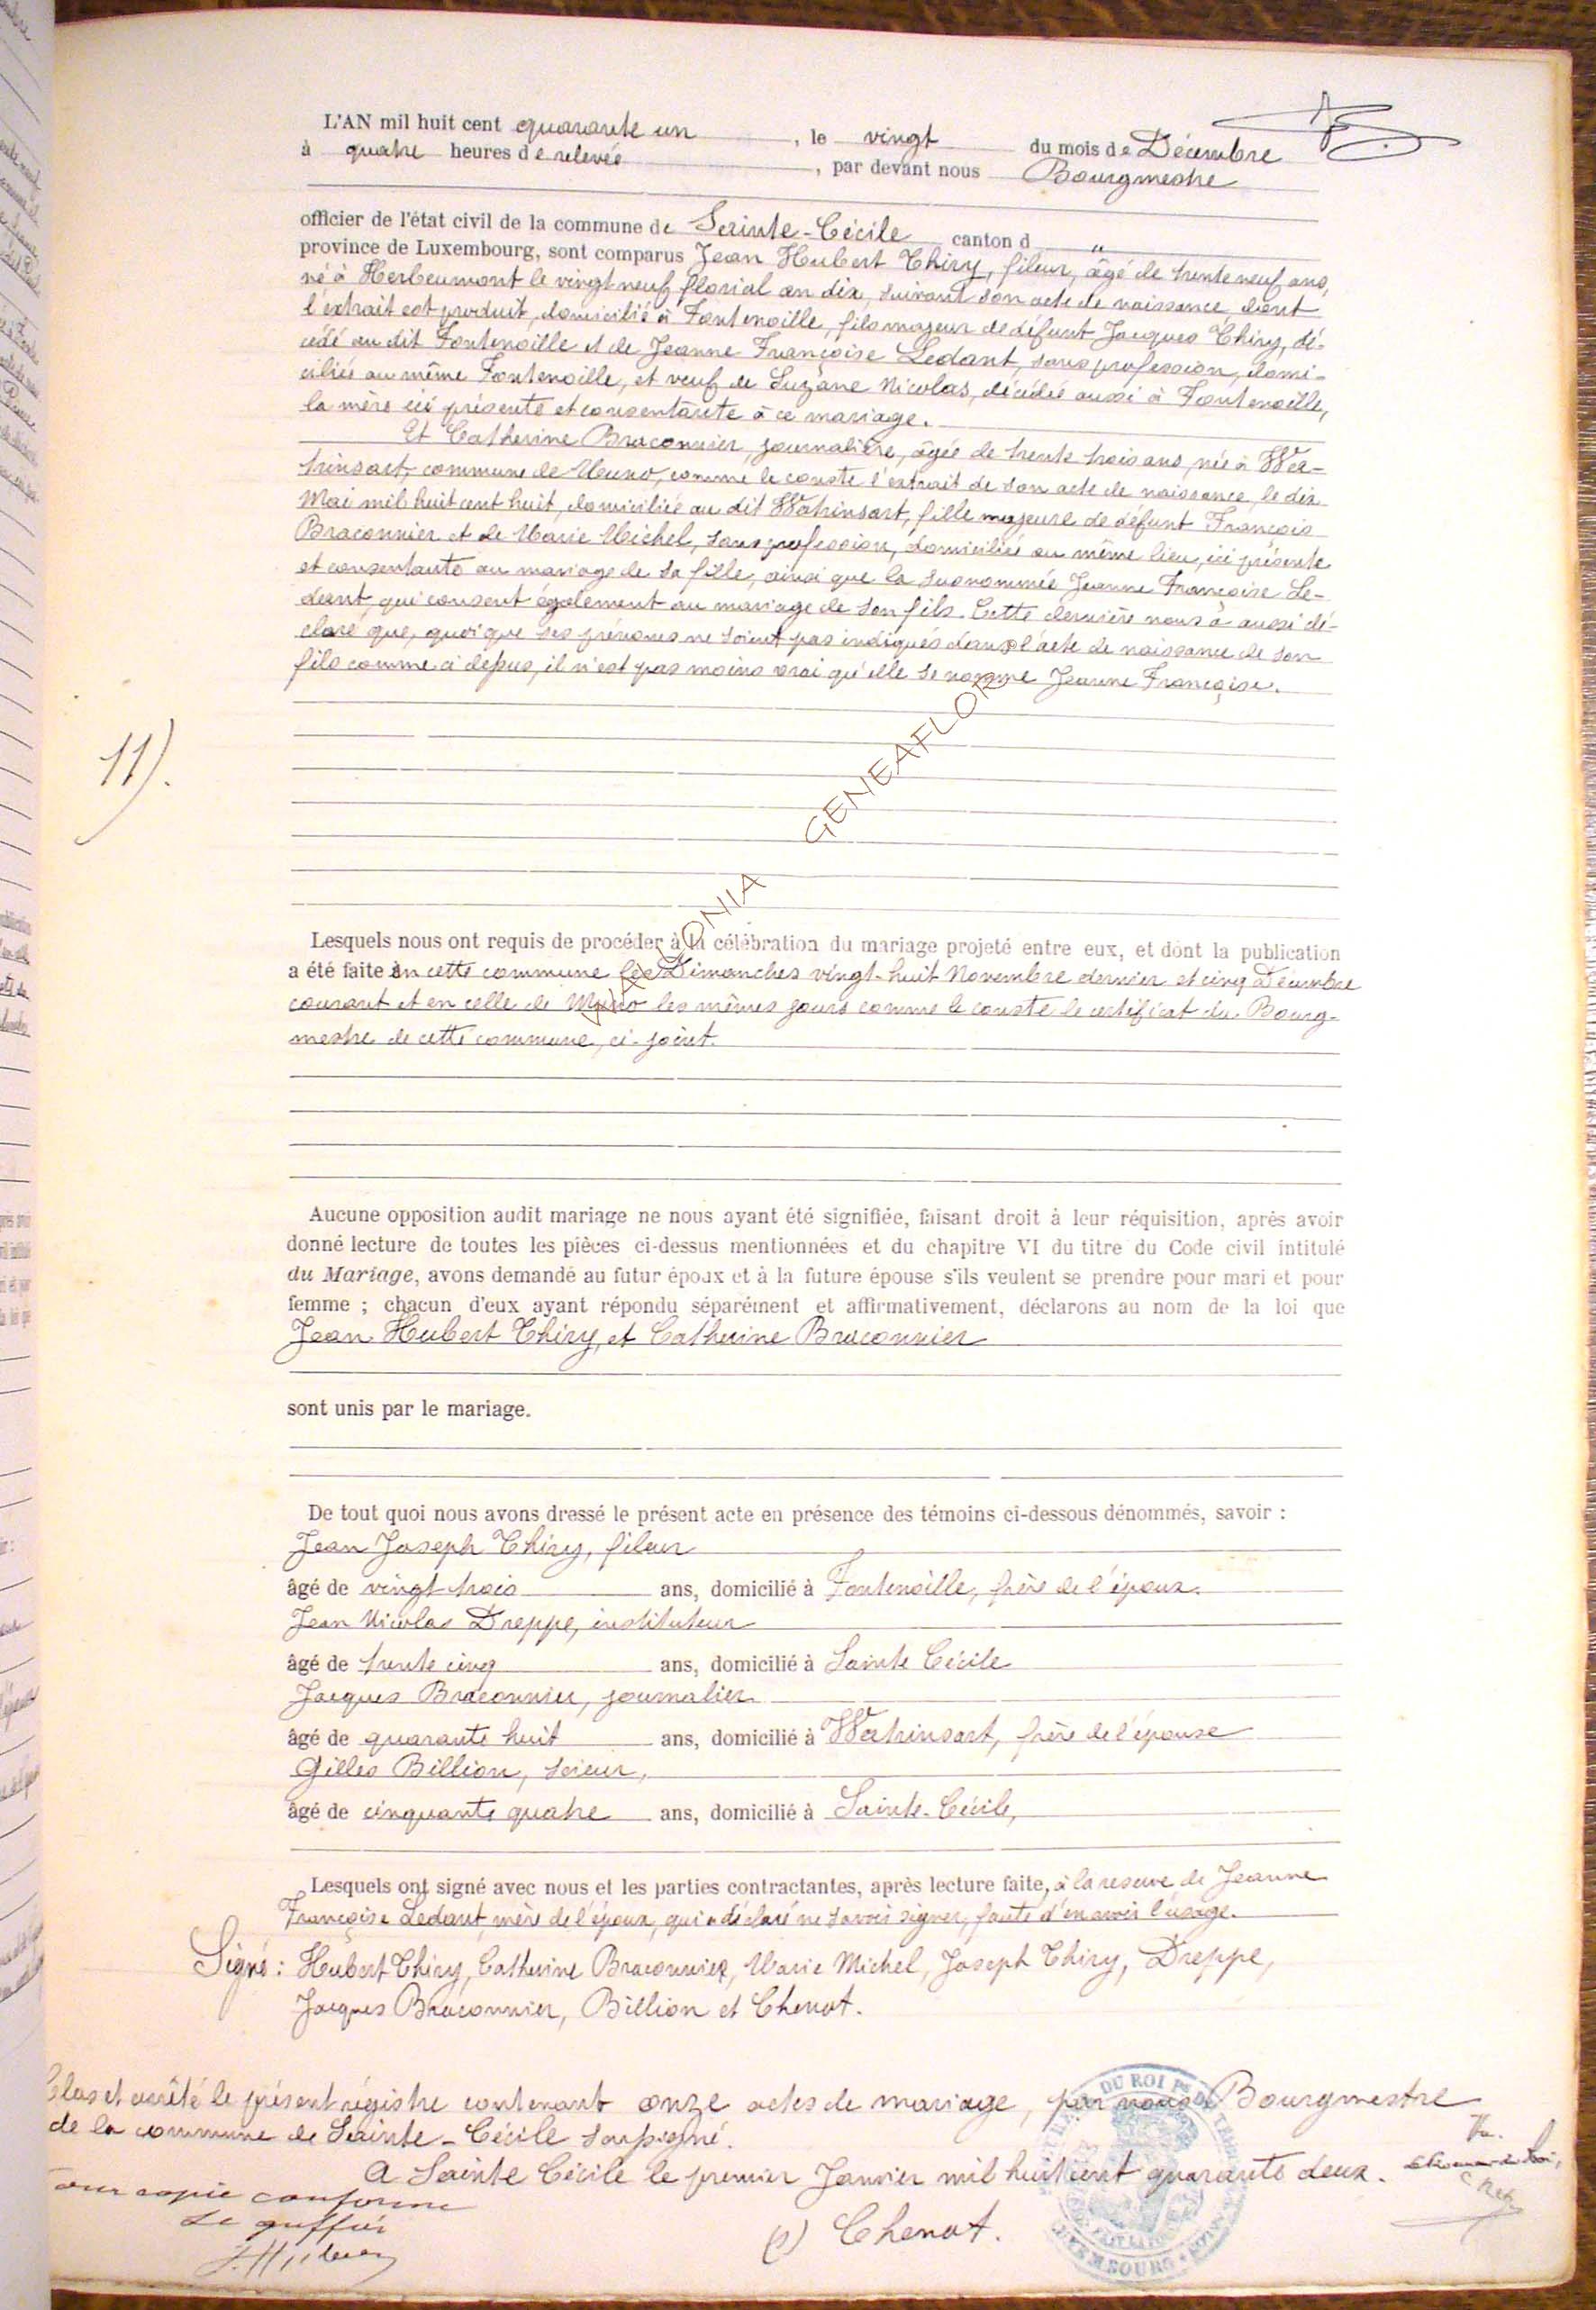 L'AN mil huit cent quarante un, le vingt du mois de Décembre
à quatre heures de relevée, par devant nous Bourgmestre
officier de l'état civil de la commune de Sainte-Cécile canton d "
province de Luxembourg, sont comparus Jean Hubert Thiry, fileur, âgé de trente neuf ans,
né à Herbeumont le vingt neuf floréal an dix, suivant son acte de naissance, dont
l'extrait est produit, domicilié à Fontenoille, fils majeur de défunt Jacques Thiry, dé-
cédé au dit Fontenoille et de Jeanne Françoise Ledant, sans profession, domi-
ciliée au même Fontenoille, et veuf de Suzane Nicolas, décédée aussi à Fontenoille,
la mère ici présente et consentante à ce mariage.
Et Catherine Braconnier, journalière, âgée de trente trois ans, née à Wa-
trinsart, commune de Muno, comme le conste l'extrait de son acte de naissance, le dix
Mai mil huit cent huit, domiciliée au dit Watrinsart, fille majeure de défunt François
Braconnier et de Marie Michel, sans profession, domiciliée au même lieu, ici présente
et consentante au mariage de sa fille, ainsi que la susnommée Jeanne Françoise Le-
dant, qui consent également au mariage de son fils. Cette dernière nous a aussi dé-
claré que, quoique ses prénoms ne soient pas indiqués dans l'acte de naissance de son
fils comme ci dessus, il n'est pas moins vrai qu'elle se nomme Jeanne Françoise.
11).
WALLONIA GENEAFLOR
Lesquels nous ont requis de procéder à la célébration du mariage projeté entre eux, et dont la publication
a été faite en cette commune les Dimanches vingt-huit Novembre dernier et cinq Décembre
courant et en celle de Muno les mêmes jours comme le conste le certificat du Bourg-
mestre de cette commune, ci-joint.
Aucune opposition audit mariage ne nous ayant été signifiée, faisant droit à leur réquisition, après avoir
donné lecture de toutes les pièces ci-dessus mentionnées et du chapitre VI du titre du Code civil intitulé
du Mariage, avons demandé au futur époux et à la future épouse s'ils veulent se prendre pour mari et pour
femme ; chacun d'eux ayant répondu séparément et affirmativement, déclarons au nom de la loi que
Jean Hubert Thiry, et Catherine Braconnier
sont unis par le mariage.
De tout quoi nous avons dressé le présent acte en présence des témoins ci-dessous dénommés, savoir :
Jean Joseph Thiry, fileur
âgé de vingt trois ans, domicilié à Fontenoille, frère de l'époux.
Jean Nicolas Dreppe, instituteur
âgé de trente cinq ans, domicilié à Sainte Cécile
Jacques Braconnier, journalier
âgé de quarante huit ans, domicilié à Watrinsart, frère de l'épouse
Gilles Billion, scieur,
âgé de cinquante quatre ans, domicilié à Sainte-Cécile,
Lesquels ont signé avec nous et les parties contractantes, après lecture faite, à la reserve de Jeanne
Françoise Ledant, mère de l'époux, qui a déclaré ne savoir signer, faute d'en avoir l'usage.
Signé : Hubert Thiry, Catherine Braconnier, Marie Michel, Joseph Thiry, Dreppe,
Jacques Braconnier, Billion et Chenot.
Clos et arrêté le présent régistre contenant onze actes de mariage, par nous Bourgmestre
de la commune de Sainte-Cécile soussigné.
A Sainte Cécile le premier Janvier mil huit cent quarante deux.
Pour copie conforme
Le greffier
(s) Chenot.
Vu.